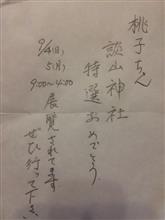 桃子ちゃん
談山神社
特選おめでとう
9/4(日)、
5(月)
9:00〜4:00
展覧されてます
ぜひ行って下さい